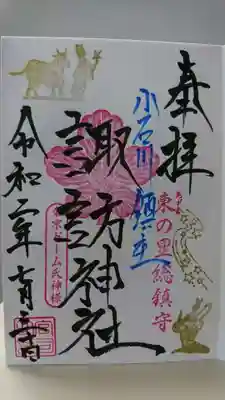 奉拝
小石川 鎮座
東の里総鎮守
諏訪神社
東京ドーム氏神様
令和二年七月三日